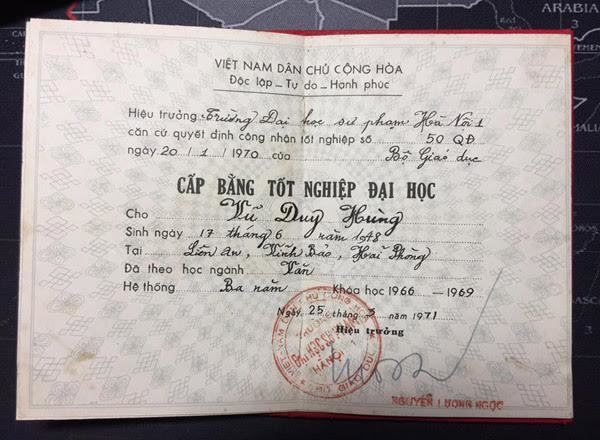 VIỆT NAM DÂN CHỦ CỘNG HÒA
Độc lập _ Tự do _ Hạnh phúc
Hiệu trưởng Trường Đại học sư phạm Hà Nội 1
căn cứ quyết định công nhân tốt nghiệp số 50 QĐ
ngày 20/1/1970 của Bộ Giáo dục
CẤP BẰNG TỐT NGHIỆP ĐẠI HỌC
Cho Vũ Duy Hùng
Sinh ngày 17 tháng 6 năm 1948
Tại Liên Am, Vĩnh Bảo, Hải Phòng
Đã theo học ngành Văn
Hệ thống Ba năm Khóa học 1966 — 1969
Ngày 25 tháng 3 năm 1971
Hiệu trưởng
HÀ NỘI 1
NGUYỄN LƯƠNG NGỌC
ARABIA